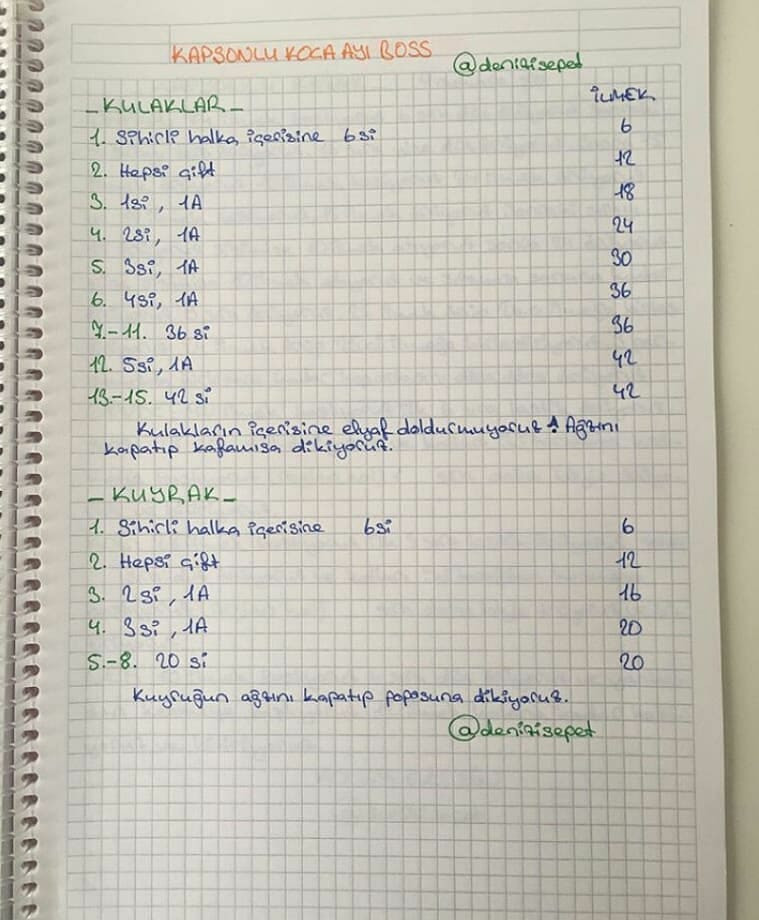 KAPSONLU KOCA AYI BOSS
@denizisepet
-KULAKLAR- İLMEK
1. Sihirli halka içerisine 6si 6
2. Hepsi çift 12
3. 1si, 1A 18
4. 2si, 1A 24
5. 3si, 1A 30
6. 4si, 1A 36
7.-11. 36 si 36
12. 5si, 1A 42
13.-15. 42 si 42
Kulakların içerisine elyaf doldurmuyoruz! Ağzını
kapatıp kafamıza dikiyoruz.
-KUYRAK-
1. Sihirli halka içerisine 6si 6
2. Hepsi çift 12
3. 2si, 1A 16
4. 3si, 1A 20
5.-8. 20 si 20
Kuyruğun ağzını kapatıp poposuna dikiyoruz.
@denizisepet